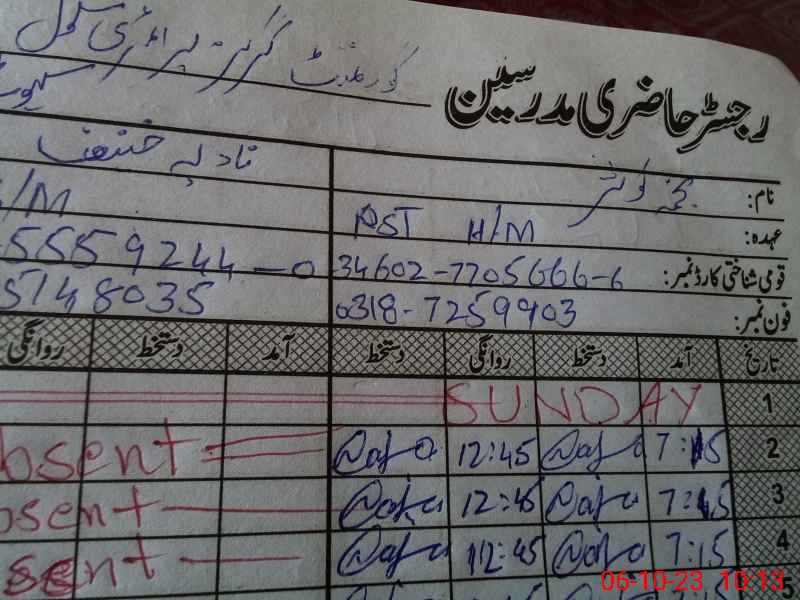 رجسٹر حاضری مدرسین
گورنمنٹ گرلز پرائمری سکول
نام: نجمہ کوثر نادیہ حنیف
عہدہ: PST H/M /M
قومی شناختی کارڈ نمبر: 34602-7705666-6 5559244-0
فون نمبر: 0318-7259903 5748035
تاریخ آمد دستخط روانگی دستخط آمد دستخط روانگی
1 SUNDAY
2 7:15 12:45 bsent
3 7:15 12:45 bsent
4 7:15 12:45 sent
5
06-10-23 10:13